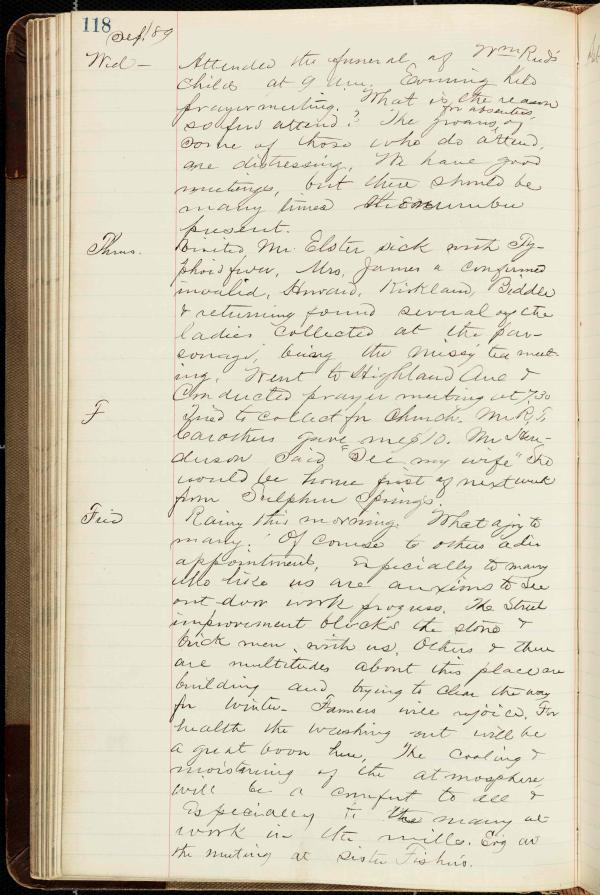 118
Sept/89
Wed — Attended the funeral of Wm Reed's
child at 9 a.m. Evening held
prayer meeting. What is the reason
for absentees,
so few attend? The groans of
some of those who do attend,
are distressing. We have good
meetings, but there should be
many times the number
present.
Thurs. Visited Mr. Elster sick with Ty-
phoid fever, Mrs. James a confirmed
invalid, Howard, Kirkland, Biddle
& returning found several of the
ladies collected at the par-
sonage, being the Missy tea meet-
ing. Went to Highland Ave &
Conducted prayer meeting at 7,30
F Tried to collect for Church. Mr R. T.
Carothers gave me $10. Mr Hen-
derson said "See my wife" She
would be home first of next week
from Sulphur Springs.
Frid Rainy this morning. What a joy to
many! Of course to others a dis
appointment, Especially to many
who like us are anxious to see
out-door work progress. The Street
improvement blocks the stone &
brick men, with us. Others & there
are multitudes about this place are
building and trying to clear the way
for Winter. Farmers will rejoice. For
health the washing out will be
a great boon here, The cooling &
moistening of the atmosphere,
will be a comfort to all &
Especially to the many at
work in the mills. Evg at
the meeting at Sister Fisher's.